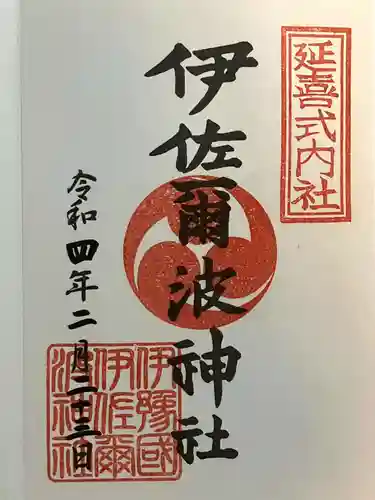 延喜式内社
伊佐爾波神社
令和四年二月二十三日
伊豫國
伊佐爾
波神社